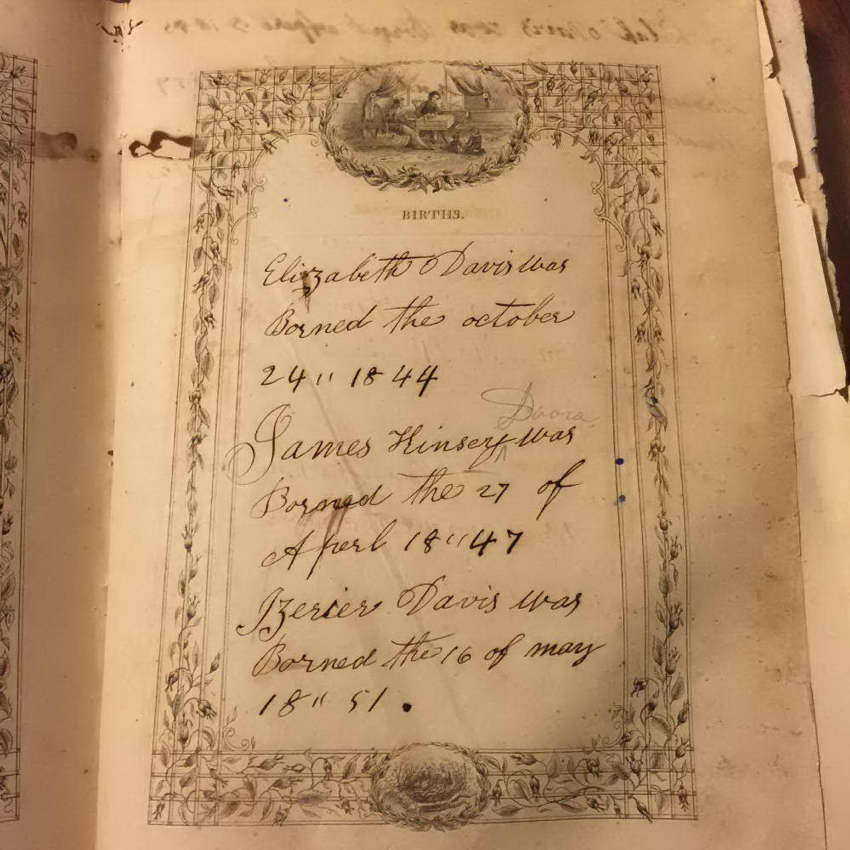 BIRTHS.
Elizabeth Davis was
Borned the october
24" 1844
James Kinsery ^ was
Borned the 27 of
Aperl 18"47
Izerier Davis was
Borned the 16 of may
18" 51.